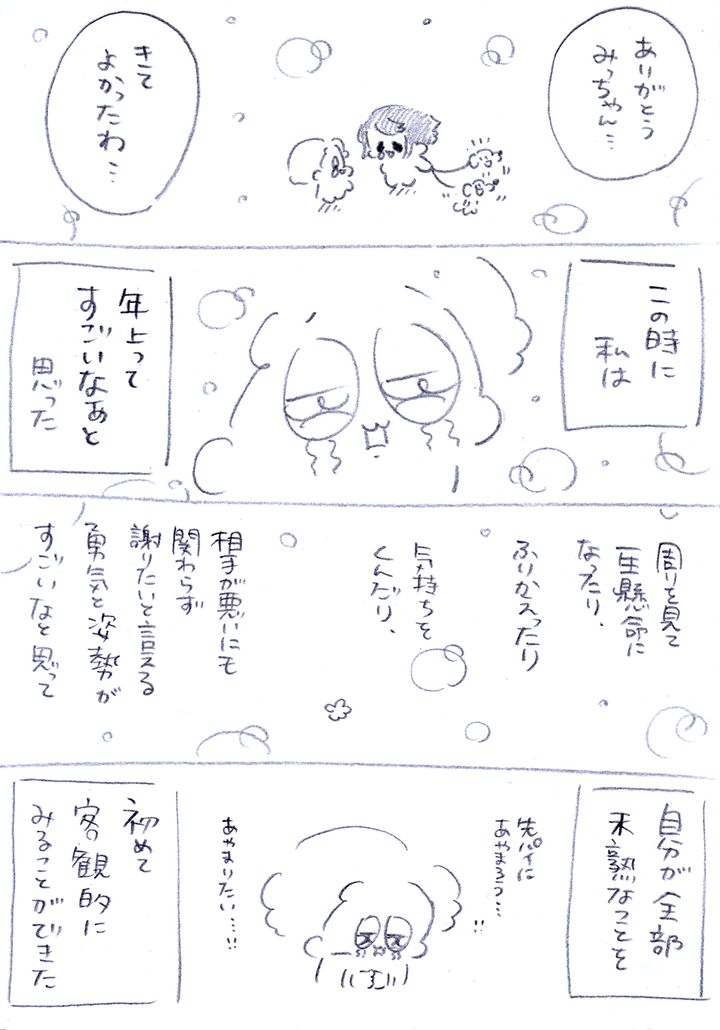 ありがとう
みっちゃん…
きて
よかったわ…
この時に
私は
年上って
すごいなぁと
思った
周りを見て
一生懸命に
なったり、
ふりかえったり
気持ちを
くんだり、
相手が悪いにも
関わらず
謝りたいと言える
勇気と姿勢が
すごいなと思って
自分が全部
未熟なことを
先パイに
あやまろう…
!!
あやまりたい…!!
初めて
客観的に
みることができた